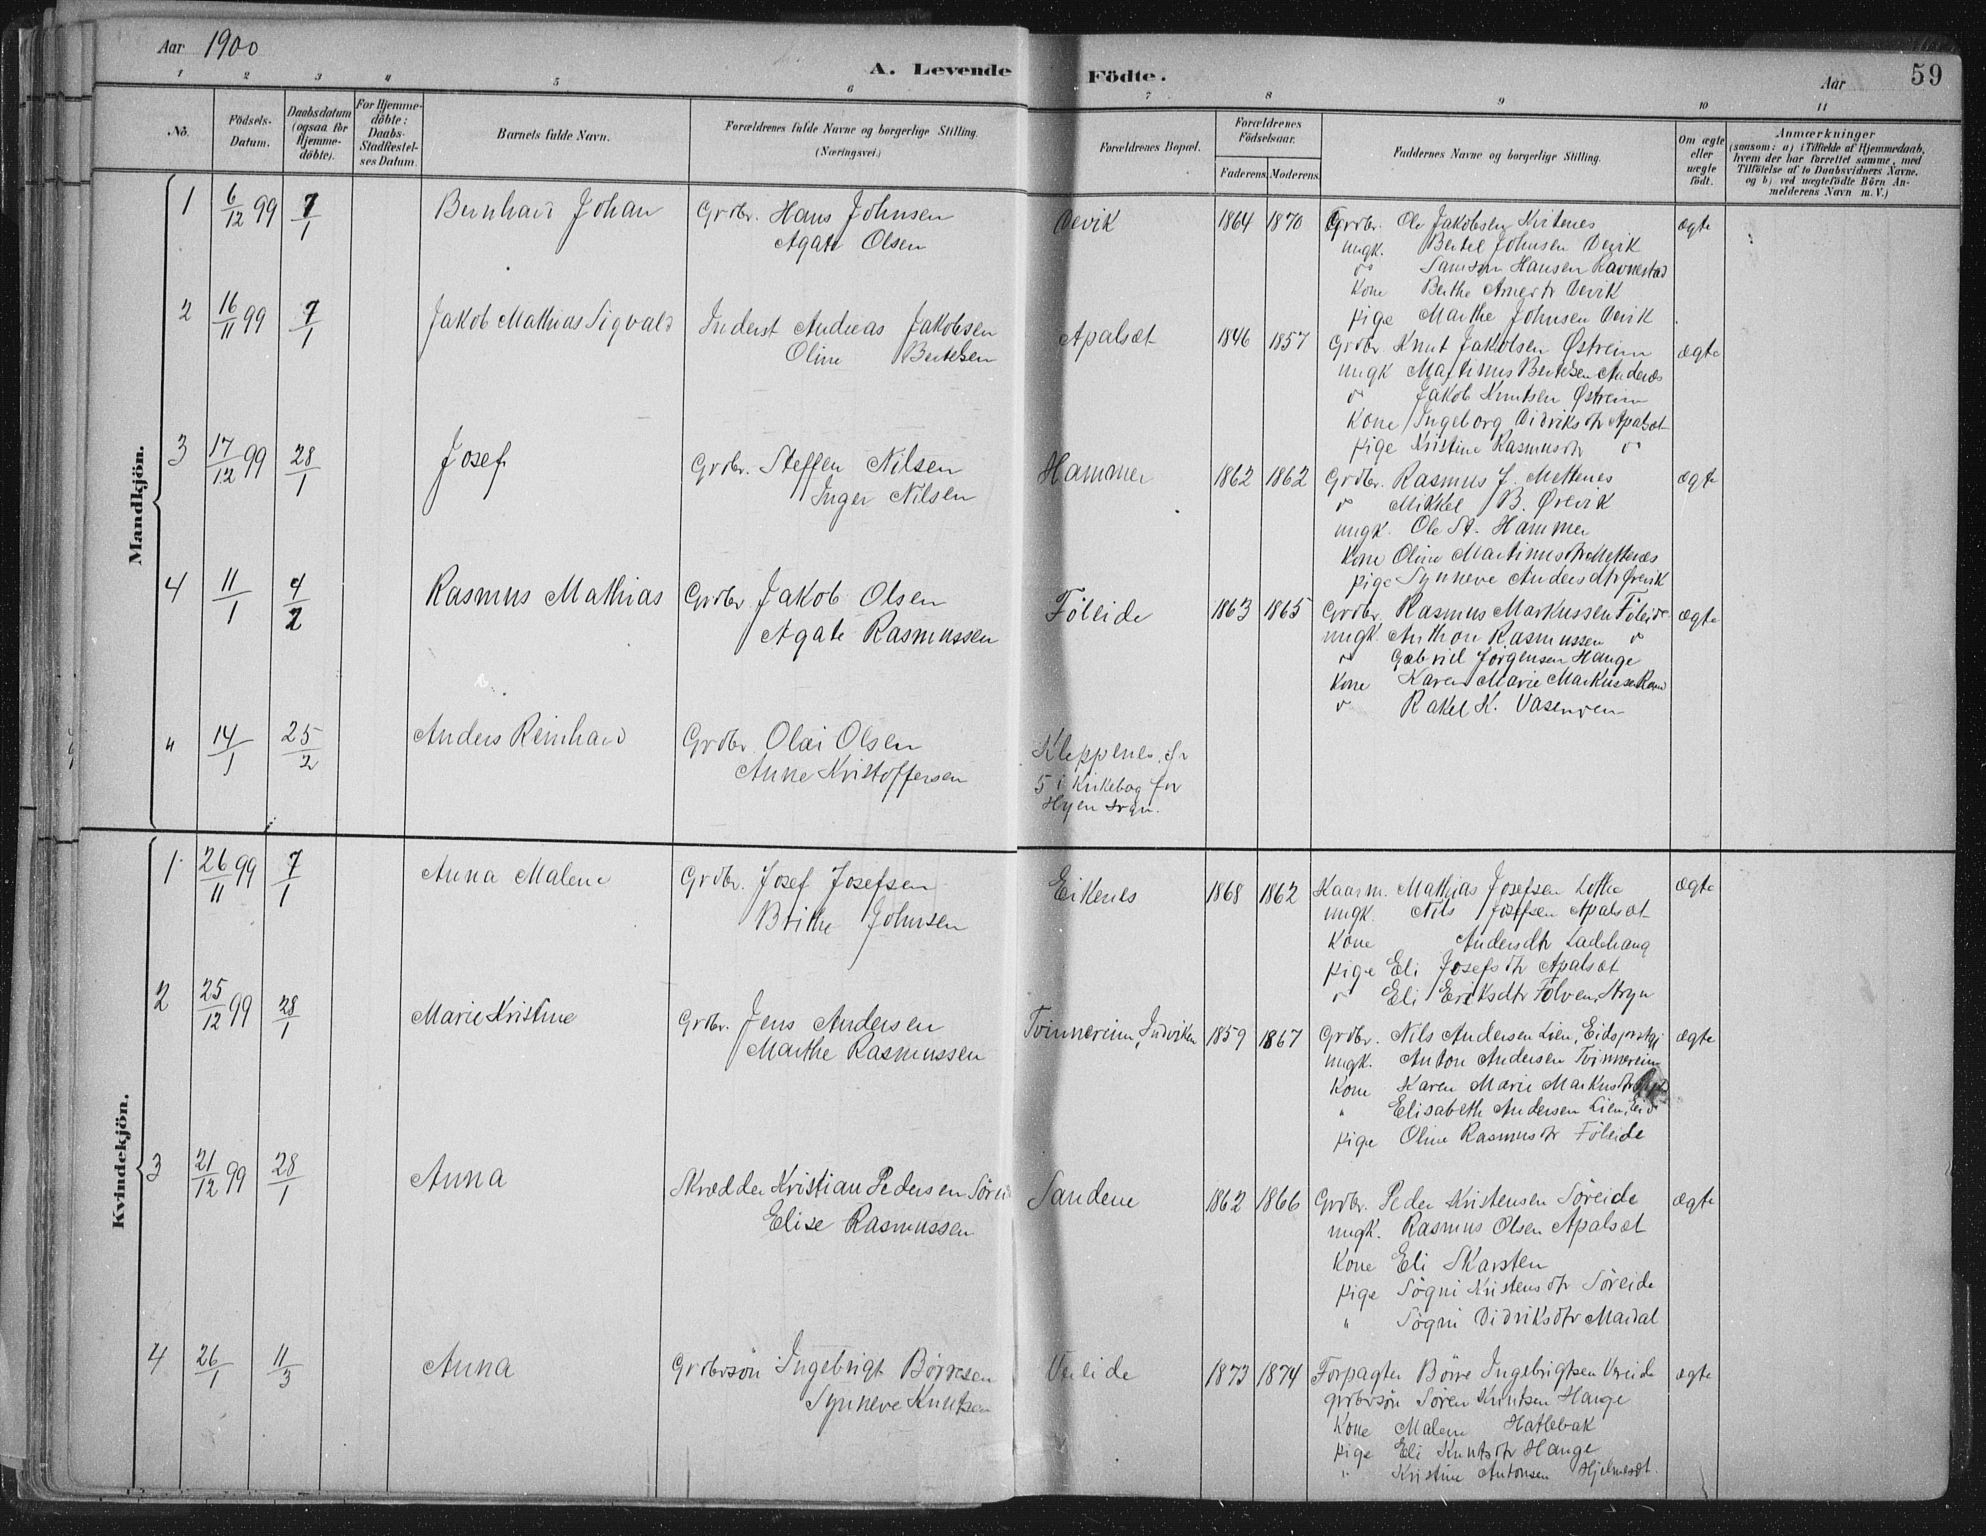 Aar 1900
A. Levende Födte.
Aar
59
1 2 3 4 5 6 7 8 9 10 11
No.
Födsels-Datum.
Daabsdatum (ogsaa for Hjemme-döbte).
For Hjemme-döbte: Daabs-Stadfæstel-ses Datum.
Barnets fulde Navn.
Forældrenes fulde Navne og borgerlige Stilling. (Næringsvei.)
Forældrenes Bopæl.
Forældrenes Födselsaar.
Faderens. Moderens.
Faddernes Navne og borgerlige Stilling.
Om ægte eller uægte födt.
Anmærkninger (saasom: a) i Tilfælde af Hjemmedaab, hvem der har forrettet samme, med Tilföielse af to Daabsvidners Navne, og b) ved uægtefödte Börn An-melderens Navn m. V.)
Mandkjön.
1 6/12 99 7/1 Bernhard Johan Grdbr. Hans Johnsen Devik 1864 1870 Grdbr. Ole Jakobsen Kvitenes ægte
Agate Olsen ungk. Bertel Johnsen Devik
do Samson Hansen Ravnestad
Kone Berthe Devik
pige Marthe Johnsen Devik
2 16/11 99 7/1 Jakob Mathias Sigvald Inderst Andreas Jakobsen Apalset 1846 1857 Grdbr. Knut Jakobsen Østreim ægte
Oline Bertelsen ungk Martinus Bertelsen Andenæs
do Jakob Knutsen Østreim
Kone Ingeborg Didriksdtr Apalset
pige Kristine Rasmusdtr do
3 17/12 99 28/1 Josef Grdbr. Steffen Nilsen Hammer 1862 1862 Grdbr. Rasmus J. Mettenes ægte
Inger Nilsen do Mikkel B. Ørevik
ungk. Ole St. Hammer
Kone Oline Martinusdtr Mettenes
pige Synneve Andersdtr Ørevik
4 11/1 4/2 Rasmus Mathias Grdbr Jakob Olsen Föleide 1863 1865 Grdbr. Rasmus Markussen Föleide ægte
Agate Rasmussen ungk. Anthon Rasmussen do
do Gabriel Jörgensen Hauge
Kone Karen Marie Markussen
do Rakel K. Vasenden
" 14/1 25/2 Anders Reinhard Grdbr. Olai Olsen Kleppenes, fr
Anne Kristoffersen 5 i Kirkebog for
Hyen sogn.
Kvindekjön.
1 26/11 99 7/1 Anna Malene Grdbr. Josef Josefsen Eikenes 1868 1862 Kaarm. Mathias Josefsen Lothe ægte
Brithe Johnsen ungk. Nils Josefsen Apalset
Kone Andersdtr Ladehaug
pige Eli Josefsdtr Apalset
do Eli Eriksdtr Folven, Stryn
2 25/12 99 28/1 Marie Kristine Grdbr. Jens Andersen Tvinnereim, Indviken 1859 1867 Grdbr. Nils Andersen Lien, Eidsprstgj ægte
Marthe Rasmussen ungk. Anton Andersen Tvinnereim
Kone Karen Marie Markusdtr
" Elisabeth Andersen Lien, Eid
pige Oline Rasmusdtr Föleide
3 21/12 99 28/1 Anna Skrædder Kristian Pedersen Söreide Sandene 1862 1866 Grdbr. Peder Kristensen Söreide ægte
Elise Rasmussen ungk. Rasmus Olsen Apalset
Kone Eli Skarsten
pige Sögni Kristensdtr Söreide
" Sögni Didriksdtr Mardal
4 26/1 11/3 Anna Grdbrsön Ingebrigt Börresen Vereide 1873 1874 Forpagter Börre Ingebrigtsen Vereide ægte
Synneve Knutsen grdbrsön Sören Knutsen Hauge
Kone Malene Hatlebak
pige Eli Knutsdtr Hauge
" Kristine Antonsen Hjelmeset